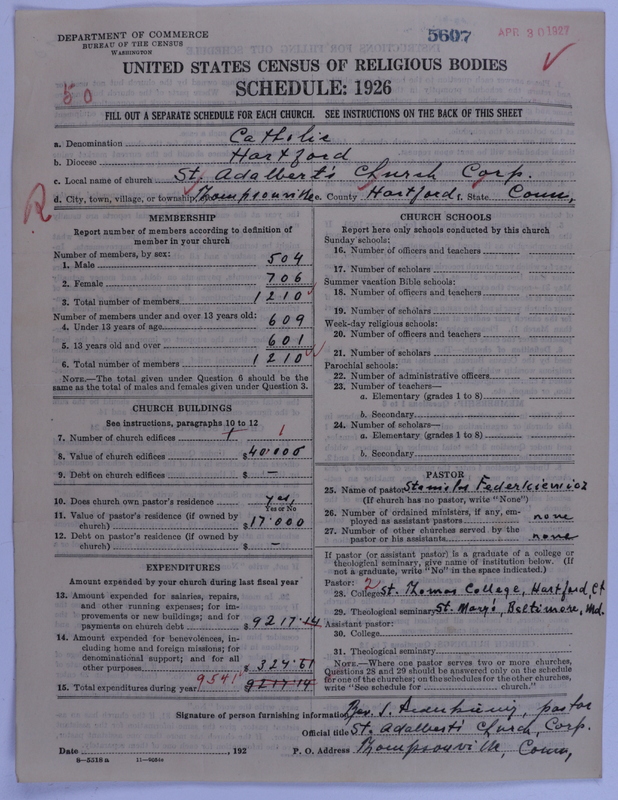 DEPARTMENT OF COMMERCE
BUREAU OF THE CENSUS
WASHINGTON
5607
APR 30 1927
UNITED STATES CENSUS OF RELIGIOUS BODIES
SCHEDULE: 1926
50
FILL OUT A SEPARATE SCHEDULE FOR EACH CHURCH. SEE INSTRUCTIONS ON THE BACK OF THIS SHEET
a. Denomination Catholic
b. Diocese Hartford
c. Local name of church St. Adalbert's Church Corp.
d. City, town, village, or township Thompsonville e. County Hartford f. State Conn,
R
MEMBERSHIP
Report number of members according to definition of member in your church
Number of members, by sex:
1. Male 504
2. Female 706
3. Total number of members 1210
Number of members under and over 13 years old:
4. Under 13 years of age 609
5. 13 years old and over 601
6. Total number of members 1210
NOTE.—The total given under Question 6 should be the same as the total of males and females given under Question 3.
CHURCH BUILDINGS
See instructions, paragraphs 10 to 12
7. Number of church edifices 1 1
8. Value of church edifices $40.000
9. Debt on church edifices $ —
10. Does church own pastor's residence yes,
Yes or No
11. Value of pastor's residence (if owned by church) $17.000
12. Debt on pastor's residence (if owned by church) $ —
EXPENDITURES
Amount expended by your church during last fiscal year
13. Amount expended for salaries, repairs, and other running expenses; for improvements or new buildings; and for payments on church debt $9217.14
14. Amount expended for benevolences, including home and foreign missions; for denominational support; and for all other purposes $324.61
15. Total expenditures during year 9541 $9217.14
CHURCH SCHOOLS
Report here only schools conducted by this church
Sunday schools:
16. Number of officers and teachers
17. Number of scholars
Summer vacation Bible schools:
18. Number of officers and teachers
19. Number of scholars
Week-day religious schools:
20. Number of officers and teachers
21. Number of scholars
Parochial schools:
22. Number of administrative officers
23. Number of teachers—
a. Elementary (grades 1 to 8)
b. Secondary
24. Number of scholars—
a. Elementary (grades 1 to 8)
b. Secondary
PASTOR
25. Name of pastor Stanislas Federkiewicz
(If church has no pastor, write "None")
26. Number of ordained ministers, if any, employed as assistant pastors none
27. Number of other churches served by the pastor or his assistants none
If pastor (or assistant pastor) is a graduate of a college or theological seminary, give name of institution below. (If not a graduate, write "No" in the space indicated.)
Pastor: 2
28. College St. Thomas College, Hartford, Ct
29. Theological seminary St. Mary's, Beltimore, Md.
Assistant pastor:
30. College
31. Theological seminary
NOTE.—Where one pastor serves two or more churches, Questions 28 and 29 should be answered only on the schedule for one of the churches; on the schedules for the other churches, write "See schedule for church."
Signature of person furnishing information Rev. S. pastor
Official title St. Adalbert's Church, Corp.
Date , 192 P. O. Address Thompsonville, Conn,
8—5318a 11—9684a